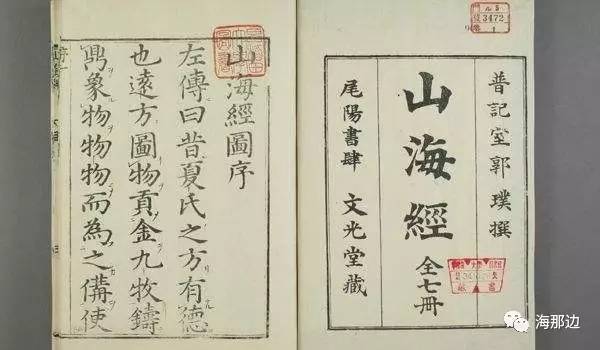 晋記室郭璞撰
山海經 全七冊
尾陽書肆 文光堂藏
山海經圖序
左傳曰昔夏氏之方有德
也遠方圖物貢金九牧鑄
鼎象物物物而為之備使
3472
1
海那边